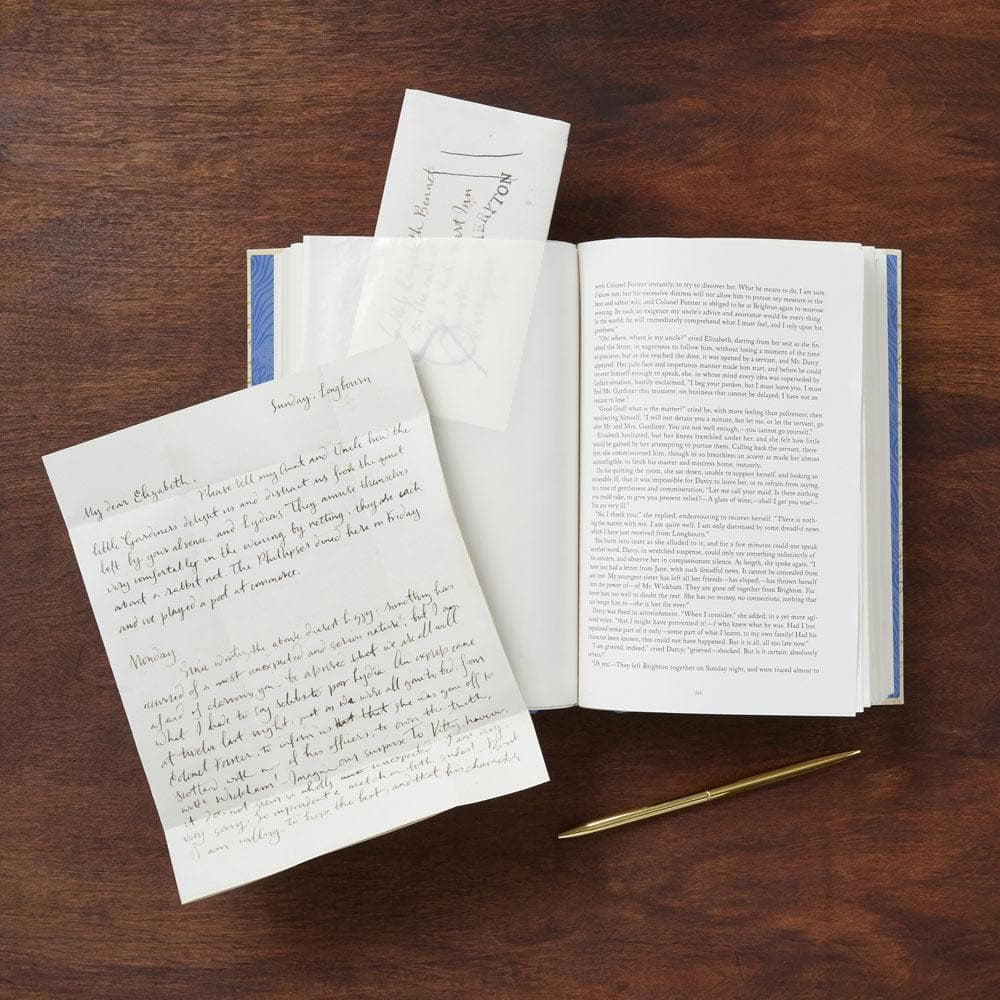 th Bennet
art Inn
ERPTON
Sunday, Longbourn
My dear Elizabeth,
Please tell my Aunt and Uncle how the
little Gardiners delight us and distract us from the quiet
left by your absence, and Lydia's. They amuse themselves
very comfortably in the evening by netting; they are each
about a rabbit net. The Phillipses dined here on Friday
and we played a pool at commerce.
Monday
Since writing the above, dearest Lizzy, something has
occurred of a most unexpected and serious nature, but I am
afraid of alarming you - be assured that we are all well
What I have to say relates to poor Lydia. An express came
at twelve last night, just as we were all gone to bed, from
Colonel Forster to inform us that she was gone off to
Scotland with one of his officers, to own the truth,
with Wickham! Imagine our surprise. To Kitty, however,
it does not seem so wholly unexpected. I am very,
very sorry. So imprudent a match on both sides! But
I am willing to hope the best, and that his character
with Colonel Forster instantly, to try to discover her. What he means to do, I am sure
I know not; but his excessive distress will not allow him to pursue any measure in the
best and safest way, and Colonel Forster is obliged to be at Brighton again to-morrow
evening. In such an exigence my uncle's advice and assistance would be every thing
in the world; he will immediately comprehend what I must feel, and I rely upon his
goodness."
"Oh! where, where is my uncle?" cried Elizabeth, darting from her seat as she fin-
ished the letter, in eagerness to follow him, without losing a moment of the time
so precious; but as she reached the door, it was opened by a servant, and Mr. Darcy
appeared. Her pale face and impetuous manner made him start, and before he could
recover himself enough to speak, she, in whose mind every idea was superseded by
Lydia's situation, hastily exclaimed, "I beg your pardon, but I must leave you. I must
find Mr. Gardiner this moment, on business that cannot be delayed; I have not an
instant to lose."
"Good God! what is the matter?" cried he, with more feeling than politeness; then
recollecting himself, "I will not detain you a minute, but let me, or let the servant, go
after Mr. and Mrs. Gardiner. You are not well enough,—you cannot go yourself."
Elizabeth hesitated, but her knees trembled under her, and she felt how little
would be gained by her attempting to pursue them. Calling back the servant, there-
fore, she commissioned him, though in so breathless an accent as made her almost
unintelligible, to fetch his master and mistress home, instantly.
On his quitting the room, she sat down, unable to support herself, and looking so
miserably ill, that it was impossible for Darcy to leave her, or to refrain from saying,
in a tone of gentleness and commiseration, "Let me call your maid. Is there nothing
you could take, to give you present relief?—A glass of wine;—shall I get you one?—
You are very ill."
"No, I thank you;" she replied, endeavouring to recover herself. "There is noth-
ing the matter with me. I am quite well. I am only distressed by some dreadful news
which I have just received from Longbourn."
She burst into tears as she alluded to it, and for a few minutes could not speak
another word. Darcy, in wretched suspense, could only say something indistinctly of
his concern, and observe her in compassionate silence. At length, she spoke again. "I
have just had a letter from Jane, with such dreadful news. It cannot be concealed from
any one. My youngest sister has left all her friends—has eloped;—has thrown herself
into the power of—of Mr. Wickham. They are gone off together from Brighton. You
know him too well to doubt the rest. She has no money, no connections, nothing that
can tempt him to—she is lost for ever."
Darcy was fixed in astonishment. "When I consider," she added, in a yet more agi-
tated voice, "that I might have prevented it!—I who knew what he was. Had I but
explained some part of it only—some part of what I learnt, to my own family! Had his
character been known, this could not have happened. But it is all, all too late now."
"I am grieved, indeed," cried Darcy; "grieved—shocked. But is it certain, absolutely
certain?"
"Oh yes!—They left Brighton together on Sunday night, and were traced almost to